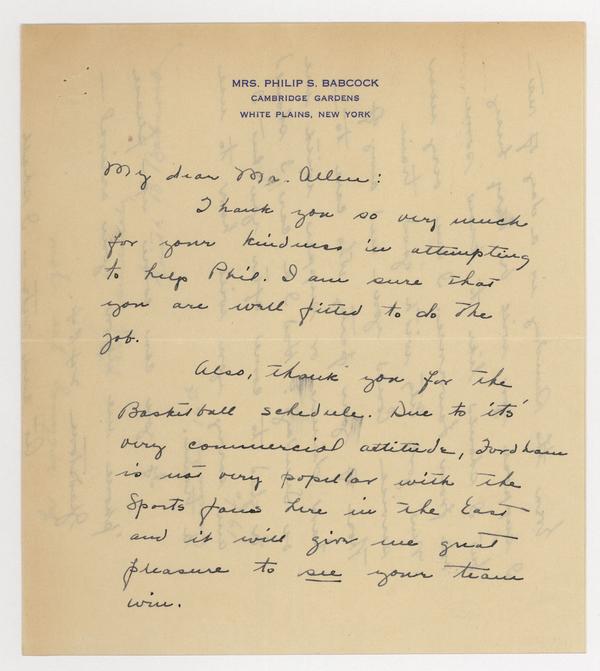 MRS. PHILIP S. BABCOCK
CAMBRIDGE GARDENS
WHITE PLAINS, NEW YORK
My dear Mr. Allen:
Thank you so very much
for your kindness in attempting
to help Phil. I am sure that
you are well fitted to do the
job.
Also, thank you for the
Basketball schedule. Due to 'its'
very commercial attitude, Fordham
is not very popular with the
Sports fans here in the East
and it will give me great
pleasure to see your team
win.